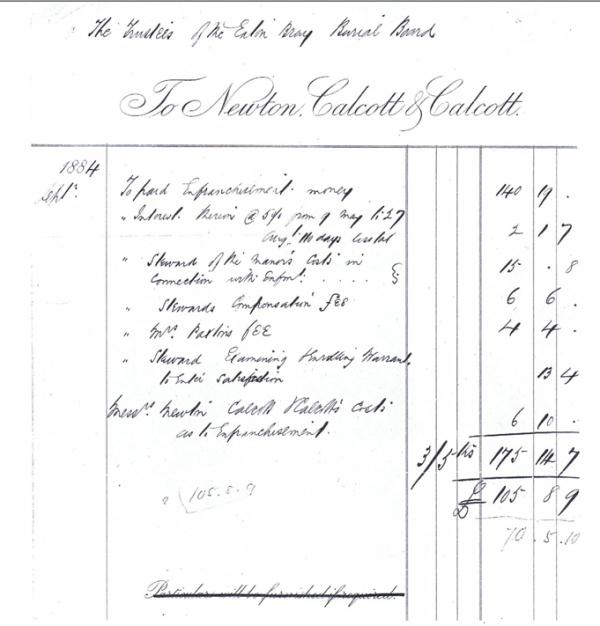 The Trustees of the Eaton Bray Burial Board
To Newton, Calcott & Calcott.
1884
Sept. To paid Enfranchisement money 140 19 .
" Interest thereon @ 5% from 9 May to 27
Aug: 110 days 2 1 7
" Steward of the Manor's Costs in
Connection with Enfmt. . . . . 15 . 8
" Stewards Compensation fee 6 6 .
" Mr. Paxtons fee 4 4 .
" Steward Examining & Warrant
to Enter Satisfaction 13 4
Messrs. Newton Calcott & Calcott's Costs
as to Enfranchisement. 6 10 .
3/5ths 175 14 7
105.5.9
£ 105 8 9
70.5.10
Particulars will be furnished if required.